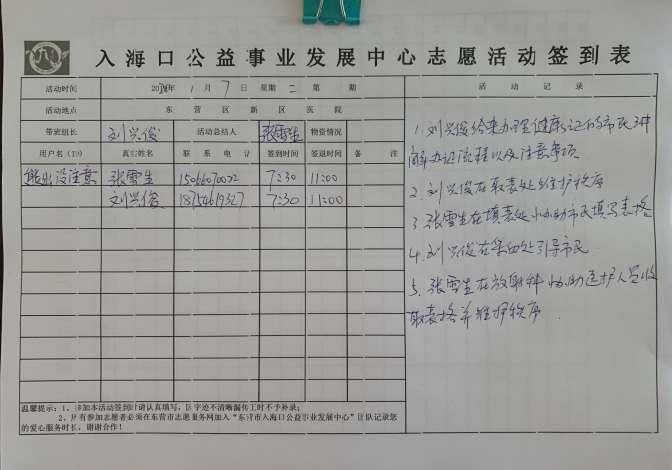 入海口公益事业发展中心志愿活动签到表
活动时间 年 1 月 7 日 星期 二 第 期
活动地点 东营区新区医院
带班组长 刘兴俊 活动总结人 张雪生 物资情况
用户名(ID) 真实姓名 联系电计 签到时间 签退时间 备注
熊出没注意 张雪生 15066070022 7:30 11:00
刘兴俊 18754619327 7:30 11:00
温馨提示:1、参加本活动签到时请认真填写,因字迹不清晰漏传工时不予补录;
2、所有参加志愿者必须在东营市志愿服务网加入“东营市入海口公益事业发展中心”团队记录您
的爱心服务时长,谢谢合作!
活动记录
1. 刘兴俊给来办理健康证的市民讲
解办证流程以及注意事项
2. 刘兴俊在取表处维护秩序
3. 张雪生在填表处协助市民填写表格
4. 刘兴俊在采血处引导市民
5. 张雪生在放射科协助医护人员收
取表格并维护秩序.